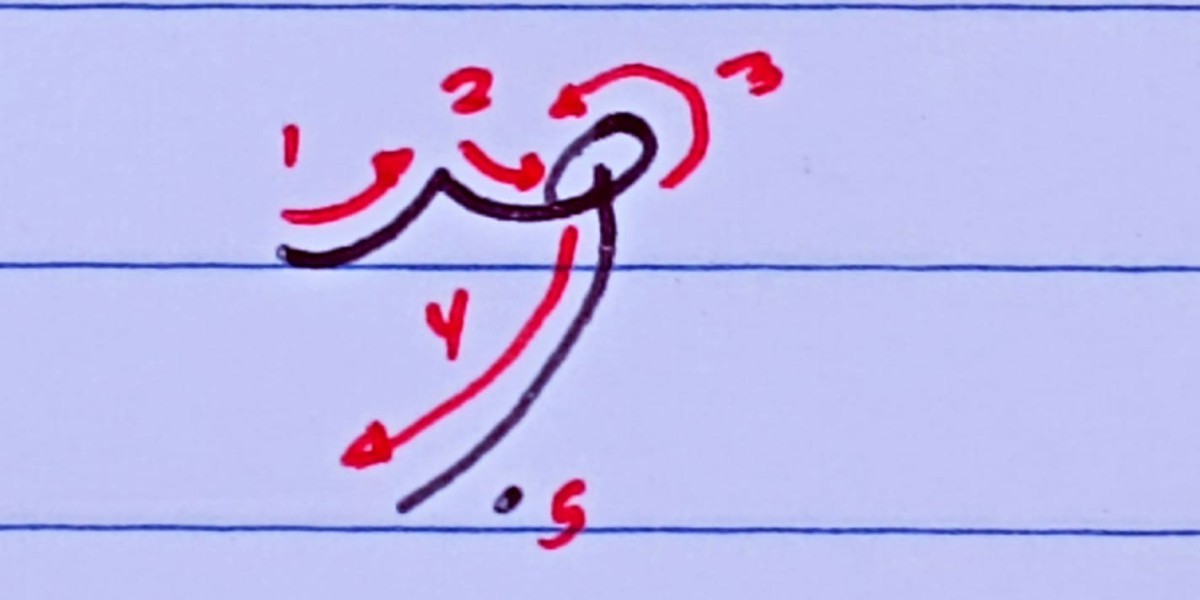 1 2 3
4
5